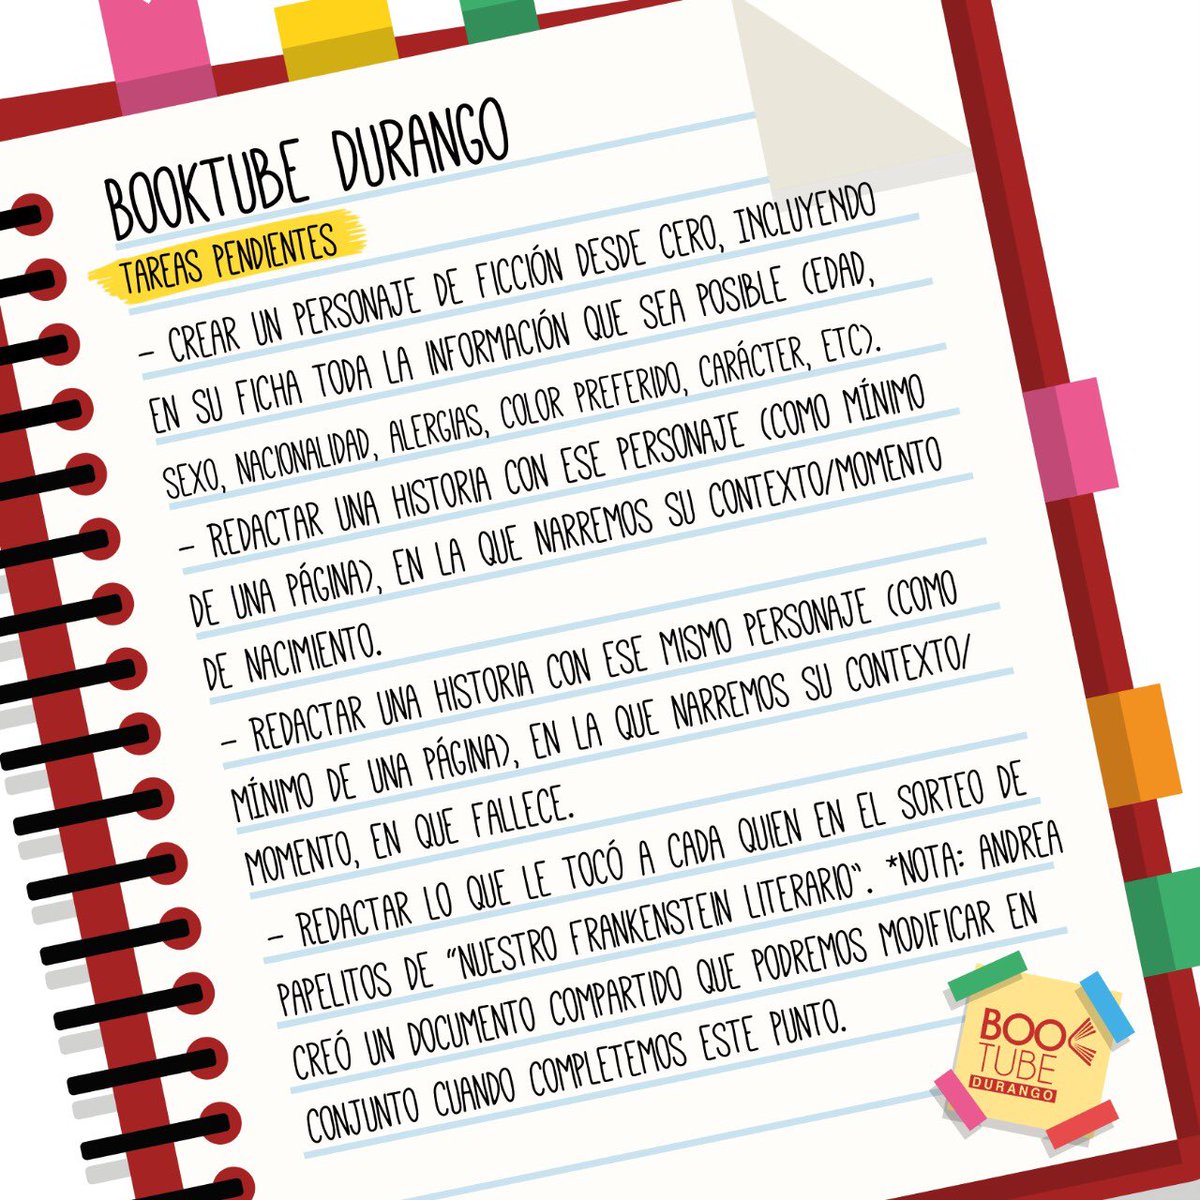 BOOKTUBE DURANGO
TAREAS PENDIENTES
- CREAR UN PERSONAJE DE FICCIÓN DESDE CERO, INCLUYENDO
EN SU FICHA TODA LA INFORMACIÓN QUE SEA POSIBLE (EDAD,
SEXO, NACIONALIDAD, ALERGIAS, COLOR PREFERIDO, CARÁCTER, ETC).
- REDACTAR UNA HISTORIA CON ESE PERSONAJE (COMO MÍNIMO
DE UNA PÁGINA), EN LA QUE NARREMOS SU CONTEXTO/MOMENTO
DE NACIMIENTO.
- REDACTAR UNA HISTORIA CON ESE MISMO PERSONAJE (COMO
MÍNIMO DE UNA PÁGINA), EN LA QUE NARREMOS SU CONTEXTO/
MOMENTO, EN QUE FALLECE.
- REDACTAR LO QUE LE TOCÓ A CADA QUIEN EN EL SORTEO DE
PAPELITOS DE "NUESTRO FRANKENSTEIN LITERARIO". *NOTA: ANDREA
CREÓ UN DOCUMENTO COMPARTIDO QUE PODREMOS MODIFICAR EN
CONJUNTO CUANDO COMPLETEMOS ESTE PUNTO.
BOOK
TUBE
DURANGO